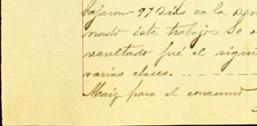 bajaron 97 Dias en la
nado éste trabajo. Se
resultado fué el sigui
varias clases. _ _ _
Maiz para el consumo